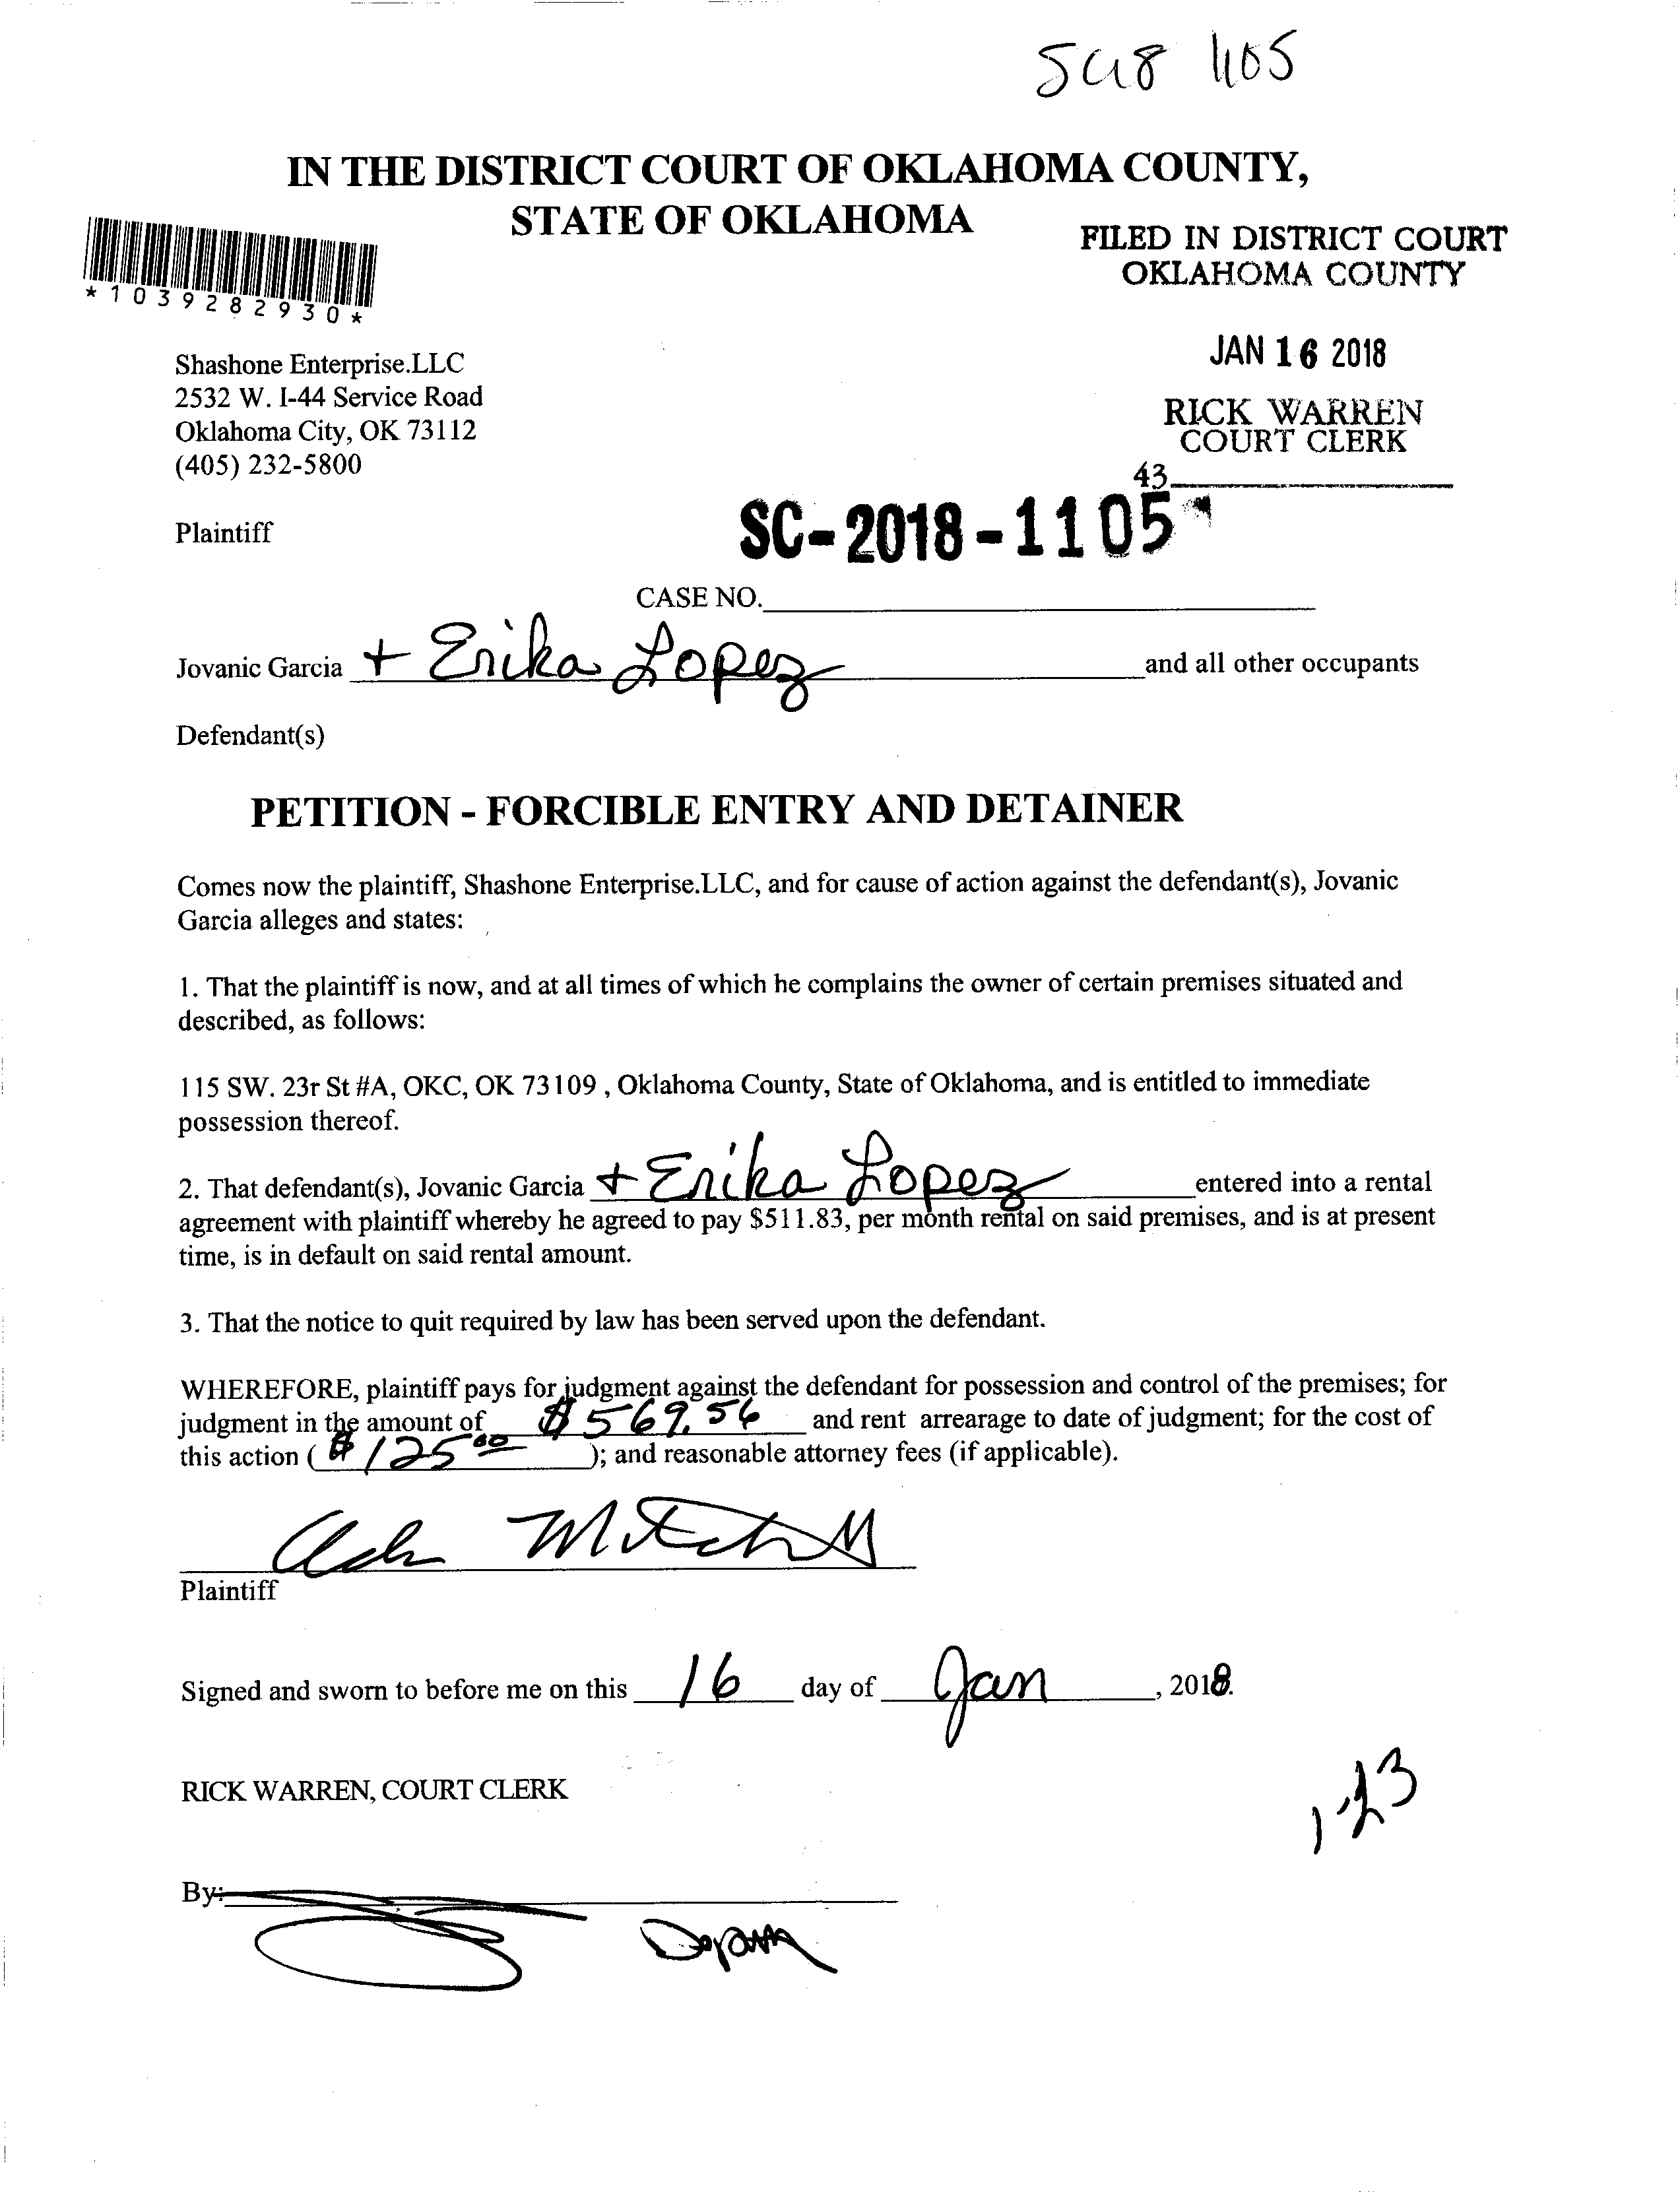 SC18 1105
IN THE DISTRICT COURT OF OKLAHOMA COUNTY,
STATE OF OKLAHOMA
FILED IN DISTRICT COURT
OKLAHOMA COUNTY
*1039282930*
JAN 16 2018
RICK WARREN
COURT CLERK
43
Shashone Enterprise.LLC
2532 W. I-44 Service Road
Oklahoma City, OK 73112
(405) 232-5800
Plaintiff
SC-2018-1105
CASE NO.
Jovanic Garcia + Erika Lopez and all other occupants
Defendant(s)
PETITION - FORCIBLE ENTRY AND DETAINER
Comes now the plaintiff, Shashone Enterprise.LLC, and for cause of action against the defendant(s), Jovanic
Garcia alleges and states:
1. That the plaintiff is now, and at all times of which he complains the owner of certain premises situated and
described, as follows:
115 SW. 23r St #A, OKC, OK 73109 , Oklahoma County, State of Oklahoma, and is entitled to immediate
possession thereof.
2. That defendant(s), Jovanic Garcia + Erika Lopez entered into a rental
agreement with plaintiff whereby he agreed to pay $511.83, per month rental on said premises, and is at present
time, is in default on said rental amount.
3. That the notice to quit required by law has been served upon the defendant.
WHEREFORE, plaintiff pays for judgment against the defendant for possession and control of the premises; for
judgment in the amount of $569.56 and rent arrearage to date of judgment; for the cost of
this action ( $125.00 ); and reasonable attorney fees (if applicable).
Mitchell
Plaintiff
Signed and sworn to before me on this 16 day of Jan , 2018.
RICK WARREN, COURT CLERK
1-23
By: